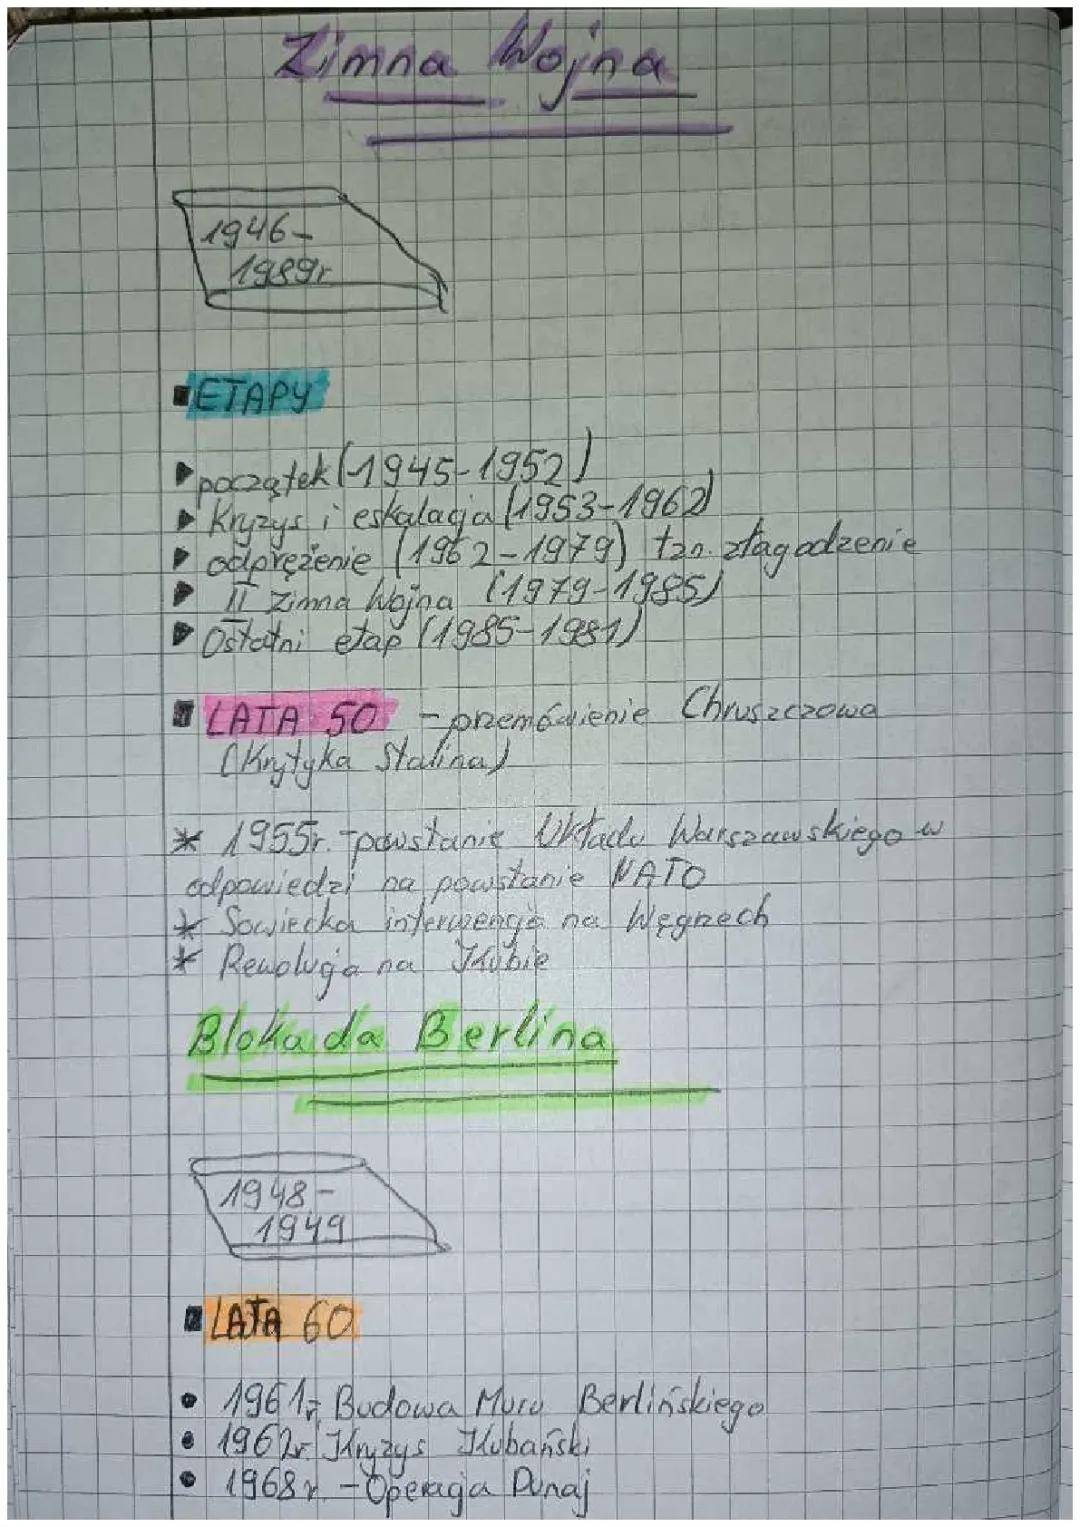 Zimna Wojna
1946-
1989r
ETAPY
początek (1945-1952)
Kryzys i eskalacja (1953-1962)
odprężenie (1962-1979) tzn. złagodzenie
II Zimna Wojna (1979-1985)
Ostatni etap (1985-1981)
LATA 50 - przemówienie Chruszczowa
(Krytyka Stalina)
* 1955r. - powstanie Układu Warszawskiego w
odpowiedzi na powstanie NATO
* Sowiecka interwencja na Węgrzech
* Rewolucja na Kubie
Blokada Berlina
1948-
1949
LATA 60
• 1961r. Budowa Muru Berlińskiego
• 1962r. Kryzys Kubański
• 1968r. - Operacja Dunaj